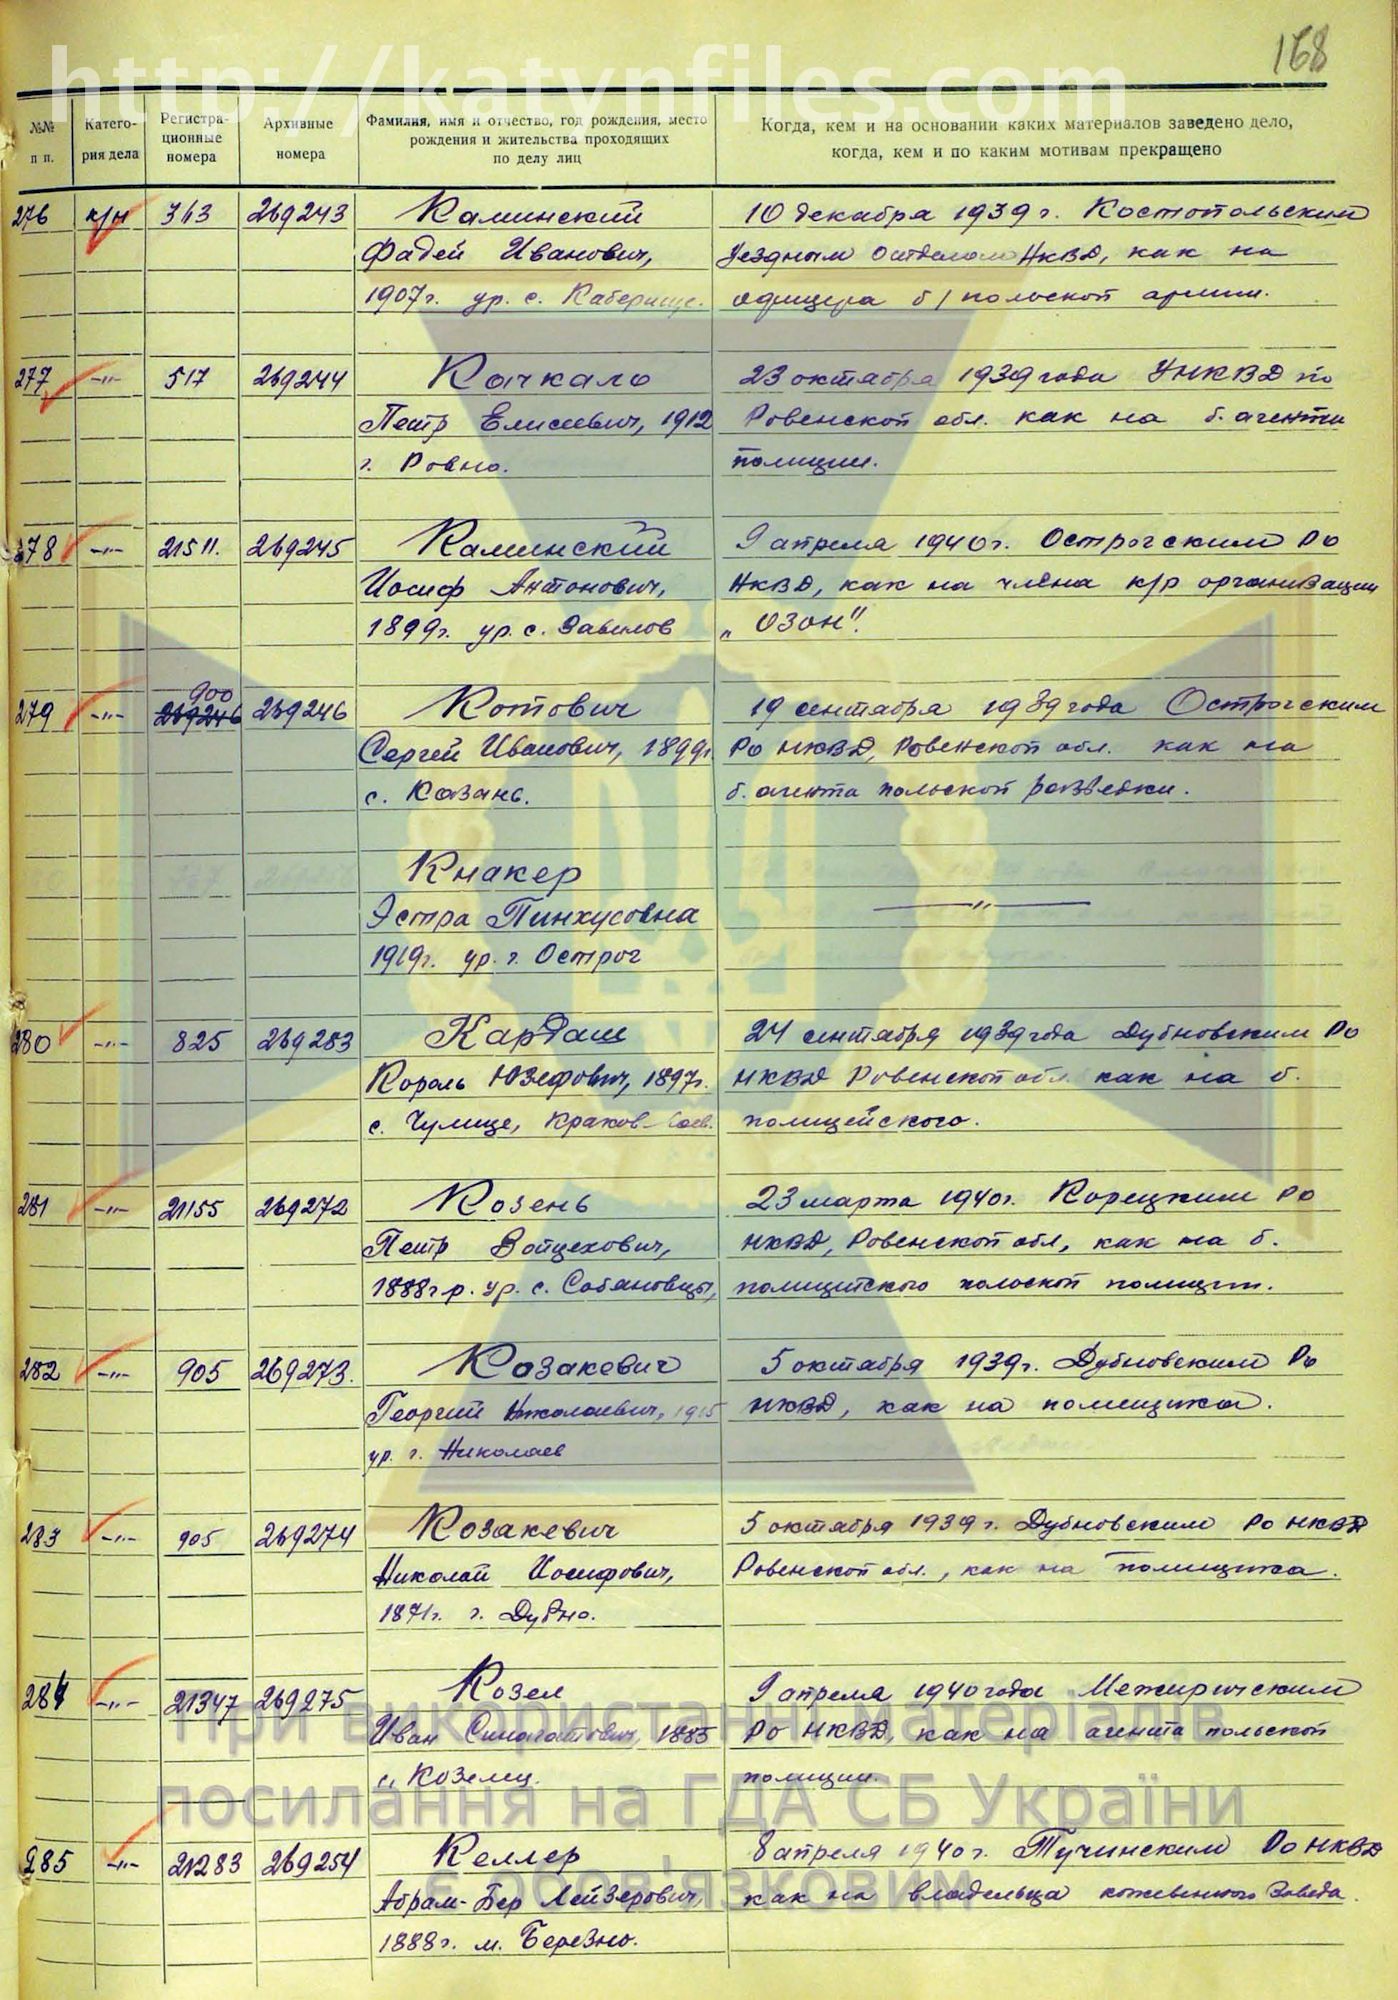 http://katynfiles.com
168
№№ п п.
Катего-рия дела
Регистра-ционные номера
Архивные номера
Фамилия, имя и отчество, год рождения, место рождения и жительства проходящих по делу лиц
Когда, кем и на основании каких материалов заведено дело, когда, кем и по каким мотивам прекращено
276 к/н 363 269243 Каминский 10 декабря 1939 г. Костопольским
Фадей Иванович, уездным отделом НКВД, как на
1907 г. ур. с. офицера б/польской армии.
277 —"— 517 269244 Качкало 23 октября 1939 года УНКВД по
Петр Елисеевич, 1912 Ровенской обл. как на б. агента
г. Ровно. полиции.
278 —"— 21511. 269245 Каминский 9 апреля 1940 г. Острогским РО
Иосиф Антонович, НКВД, как на члена к/р организации
1899 г. ур. с. Завилов „ОЗОН".
900
279 —"— 269246 269246 Котович 19 сентября 1939 года Острогским
Сергей Иванович, 1899 г. РО НКВД, Ровенской обл. как на
с. Казань. б. агента польской разведки.
Кнакер
Эстра Пинхусовна —"—
1919 г. ур. г. Острог
280 —"— 825 269283 Кардаш 24 сентября 1939 года Дубновским РО
Кароль Юзефович, 1897 г. НКВД Ровенской обл. как на б.
с. Чулице, Краков. полицейского.
281 —"— 21155 269272 Козень 23 марта 1940 г. Корецким РО
Петр Войцехович, НКВД, Ровенской обл, как на б.
1888 г.р. ур. с. Собановцы, полицейского польской полиции.
282 —"— 905 269273. Козакевич 5 октября 1939 г. Дубновским РО
Георгий Николаевич, 1915 НКВД, как на помещика.
ур. г. Николаев
283 —"— 905 269274 Козакевич 5 октября 1939 г. Дубновским РО НКВД
Николай Иосифович, Ровенской обл., как на помещика.
1871 г. г. Дубно.
284 —"— 21347 269275 Козел 9 апреля 1940 года Межиричским
Иван 1885 РО НКВД, как на агента польской
с. Козелец. полиции.
285 —"— 21283 269254 Келлер 8 апреля 1940 г. Тучинским РО НКВД
Абрам-Бер Лейзерович, как на владельца кожевенного завода.
1888 г. м. Березно.
При використанні матеріалів
посилання на ГДА СБ України
є обов'язковим